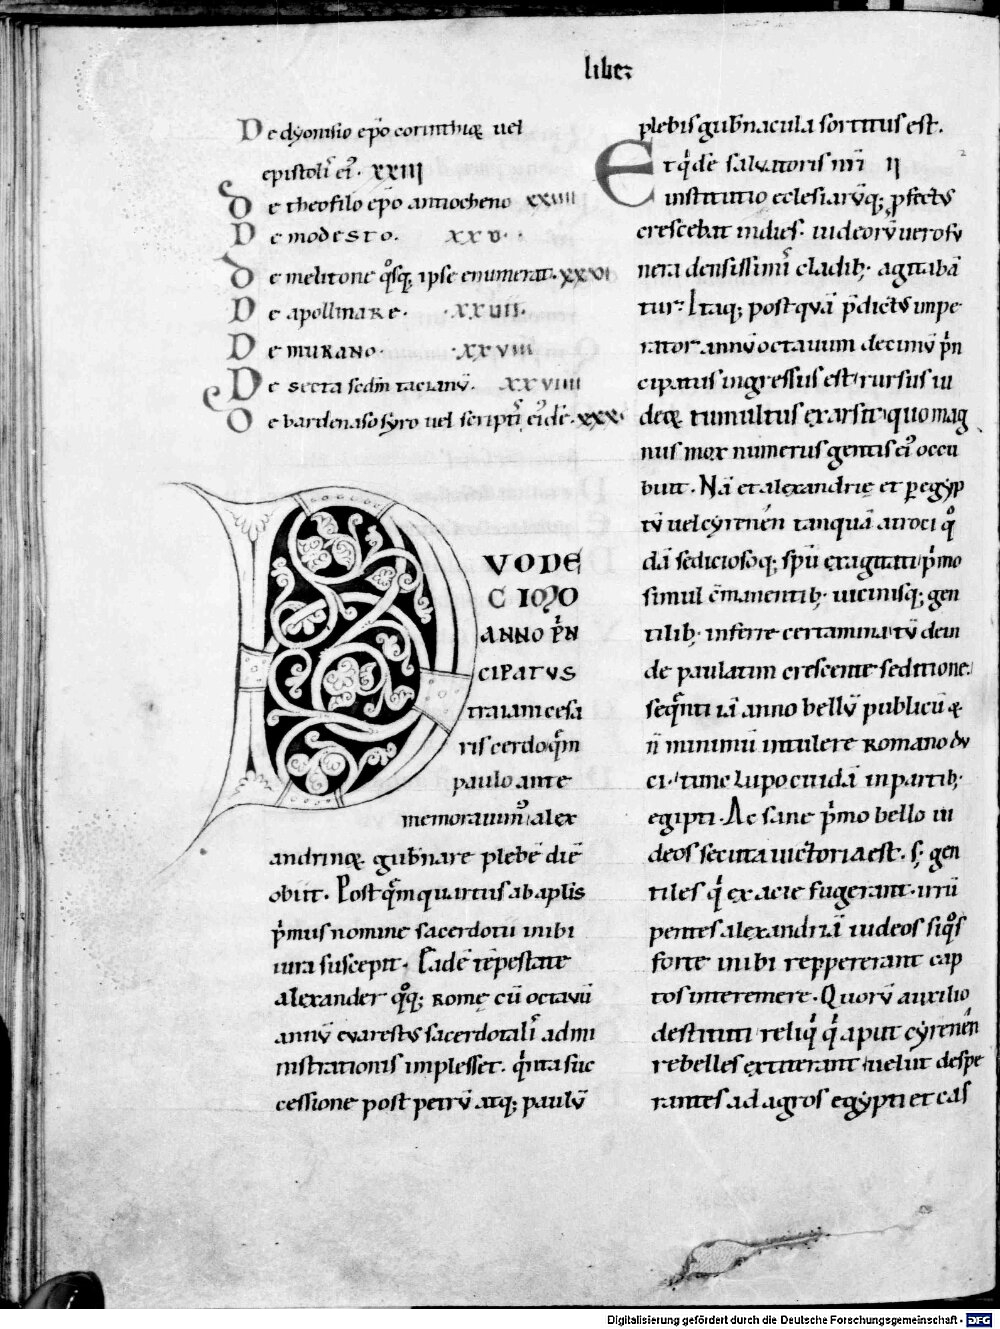 liber
De dyonisio ep̄o corinthię uel
epistol̄ ei᾽· xxiii
De theofilo ep̄o antiocheno xxiiii
De modesto· xxv·
De melitone q̊sq; ipse enumerat· xxvi
De apollinare· xxvii·
De musano· xxviii
De secta sedm̄ tacianū· xxviiii
De bardenaso syro uel script̄ ei᾽dē· xxx·
DVODE
CIMO
ANNO PͥN
CIPATVS
traiani cesa
ris cerdo quē
paulo ante
memorauim᾽ alex
andrinę gub̄nare plebē diē
obiit· Post quē quartus ab aplis
pͥmus nomine sacerdotii inibi
iura suscepit· Eadē tēpestate
alexander q̊q; romę cū octauū
annū euarestus sacerdotali admi
nistrationis implesset· qͥnta suc
cessione post petrū atq; paulū
plebis gub̄nacula sortitus est·
Et qͥdē saluatoris nr̄i II
institutio eclesiarūq; ꝓfectus
crescebat in dies· iudeorū uero fu
nera densissimis cladib; agitabā
tur· Itaq; postquā p̄dictus impe
rator annū octauum decimū pͥn
cipatus ingressus est· rursus iu
deę tumultus exarsit· quo mag
nus mox numerus gentis ei᾽ occu
buit· Nā et alexandrię et ꝑ egyp
tū uel cyrenēn tanquā atroci q̊
dā sedicioso q; sp̄u exagitati pͥmo
simul cōmanentib; uicinisq; gen
tilib; inferre certamina· tū dein
de paulatim crescente seditione·
sequēti iā anno bellū publicū &
n̄ minimū intulere romano du
ci· tunc lupo cuidā in partib;
egipti· Ac sane pͥmo bello iu
deos secuta uictoria est· s; gen
tiles qͥ ex acie fugerant· irrū
pentes alexandriā iudeos siq̊s
forte inibi reppererant cap
tos interemere· Quorū auxilio
destituti reliqͥ qͥ aput cyrenēn
rebelles extiterant uelut despe
rantes ad agros egypti et cas
Digitalisierung gefördert durch die Deutsche Forschungsgemeinschaft - DFG